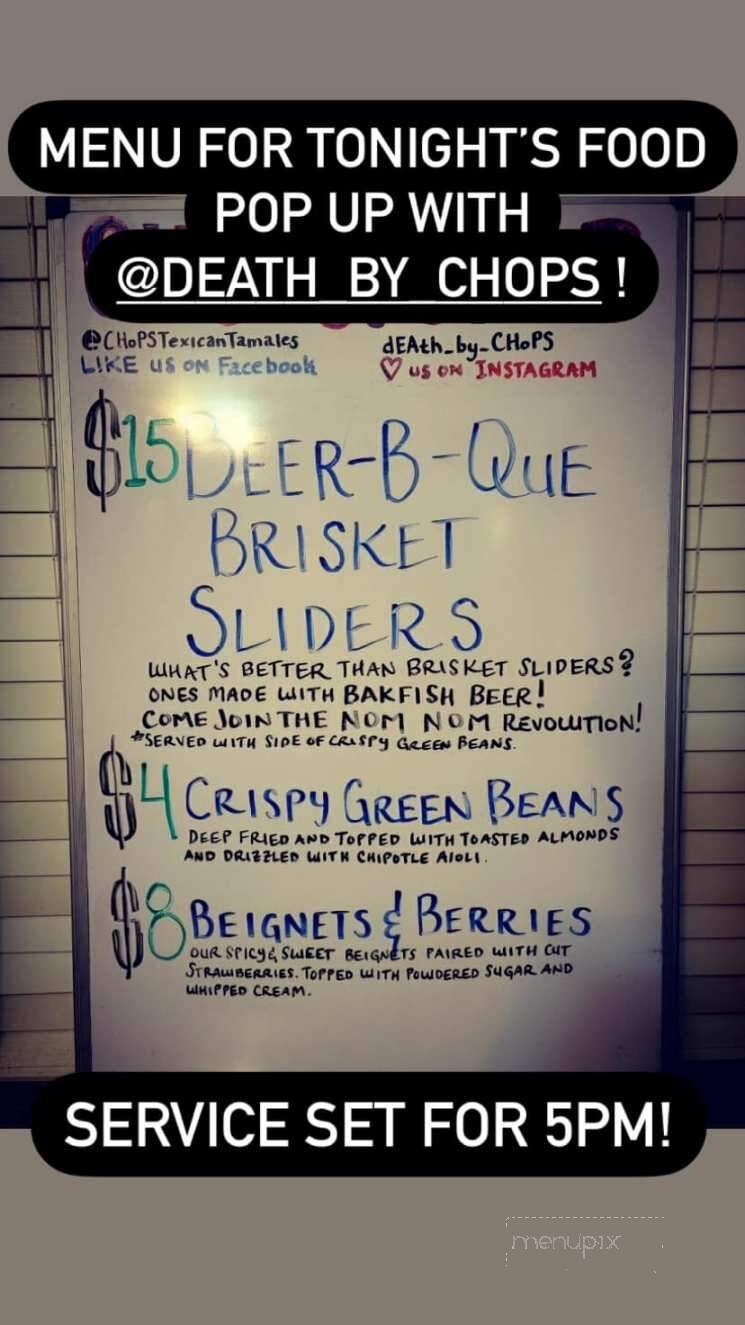 MENU FOR TONIGHT'S FOOD
POP UP WITH
@DEATH_BY_CHOPS !
@CHoPSTexicanTamales
LIKE us on Facebook
dEAth_by_CHoPS
♡ us on INSTAGRAM
$15 BEER-B-QUE
BRISKET
SLIDERS
WHAT'S BETTER THAN BRISKET SLIDERS?
ONES MADE WITH BAKFISH BEER!
COME JOIN THE NOM NOM REVOLUTION!
*SERVED WITH SIDE OF CRISPY GREEN BEANS.
$4 CRISPY GREEN BEANS
DEEP FRIED AND TOPPED WITH TOASTED ALMONDS
AND DRIZZLED WITH CHIPOTLE AIOLI.
$8 BEIGNETS & BERRIES
OUR SPICY & SWEET BEIGNETS PAIRED WITH CUT
STRAWBERRIES. TOPPED WITH POWDERED SUGAR AND
WHIPPED CREAM.
SERVICE SET FOR 5PM!
menupix